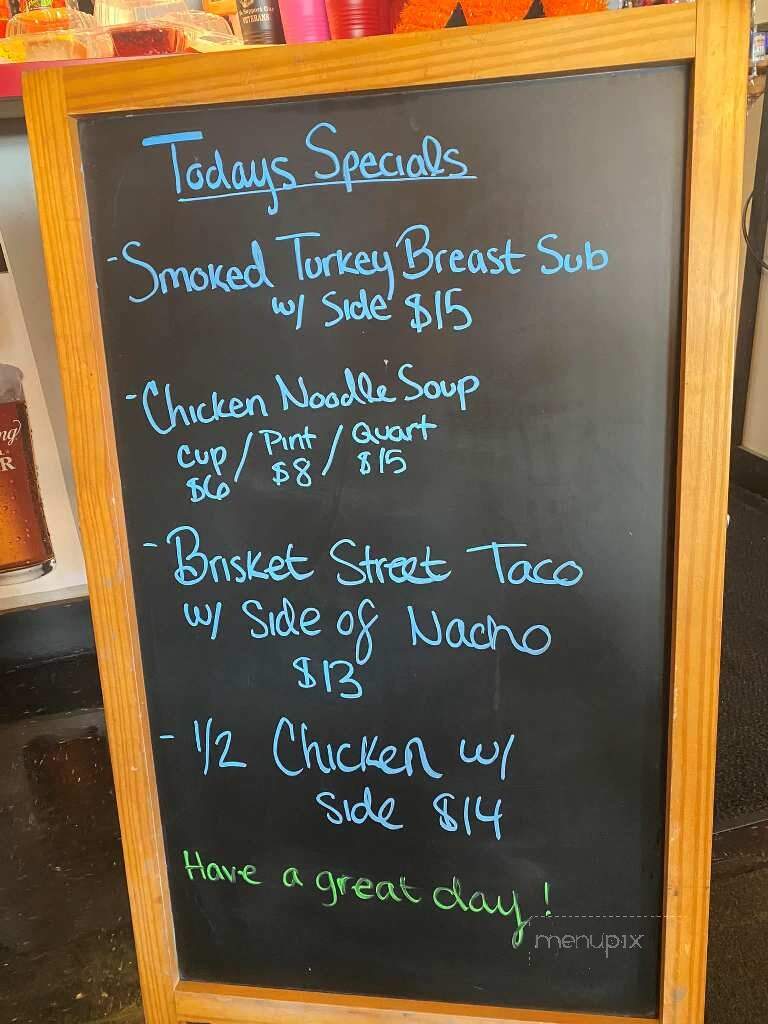 Support Our
VETERANS
Todays Specials
- Smoked Turkey Breast Sub
w/ Side $15
- Chicken Noodle Soup
Cup / Pint / Quart
$6 $8 $15
- Brisket Street Taco
w/ Side of Nacho
$13
- 1/2 Chicken w/
Side $14
Have a great day!
menupix